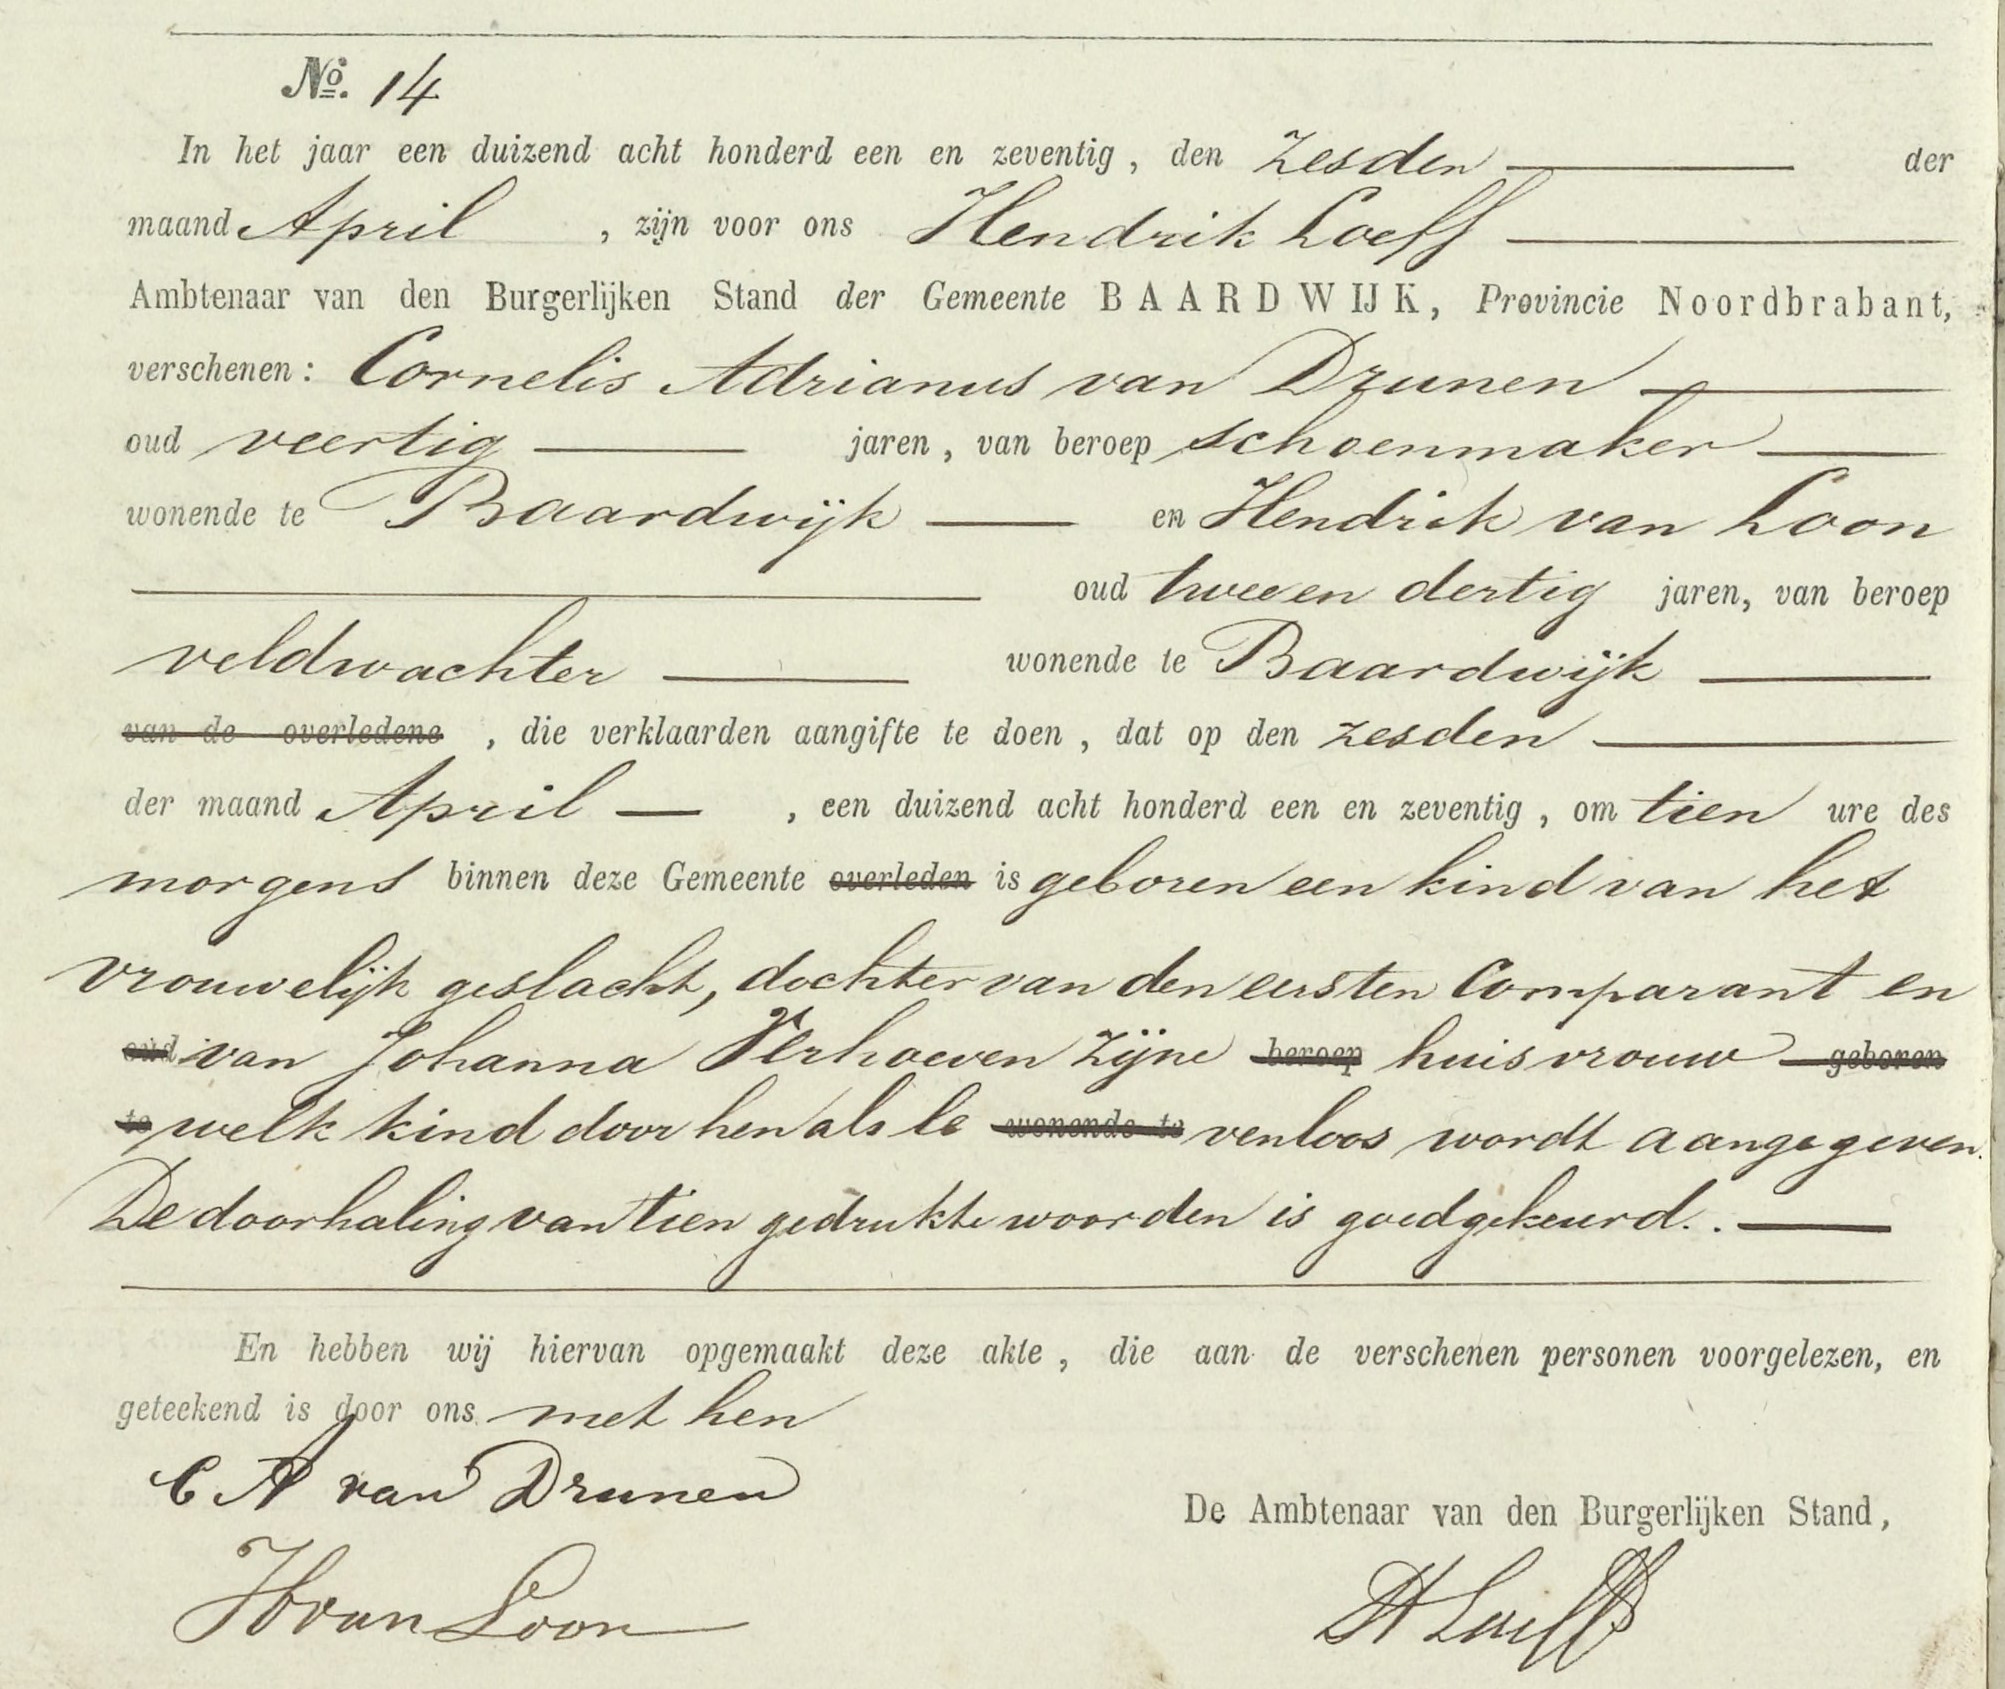 No. 14
In het jaar een duizend acht honderd een en zeventig, den zesden der
maand April, zijn voor ons Hendrik Loeff
Ambtenaar van den Burgerlijken Stand der Gemeente BAARDWIJK, Provincie Noordbrabant,
verschenen: Cornelis Adrianus van Drunen
oud veertig jaren, van beroep schoenmaker
wonende te Baardwijk en Hendrik van Loon
oud twee en dertig jaren, van beroep
veldwachter wonende te Baardwijk
van de overledene, die verklaarden aangifte te doen, dat op den zesden
der maand April, een duizend acht honderd een en zeventig, om tien ure des
morgens binnen deze Gemeente overleden is geboren een kind van het
vrouwelijk geslacht, dochter van den eersten Comparant en
oud van Johanna Verhoeven zijne beroep huisvrouw geboren
te welk kind door hen als le wonende te venloos wordt aangegeven.
De doorhaling van tien gedrukte woorden is goedgekeurd.
En hebben wij hiervan opgemaakt deze akte, die aan de verschenen personen voorgelezen, en
geteekend is door ons met hen
C A van Drunen
De Ambtenaar van den Burgerlijken Stand,
H van Loon
H Loeff